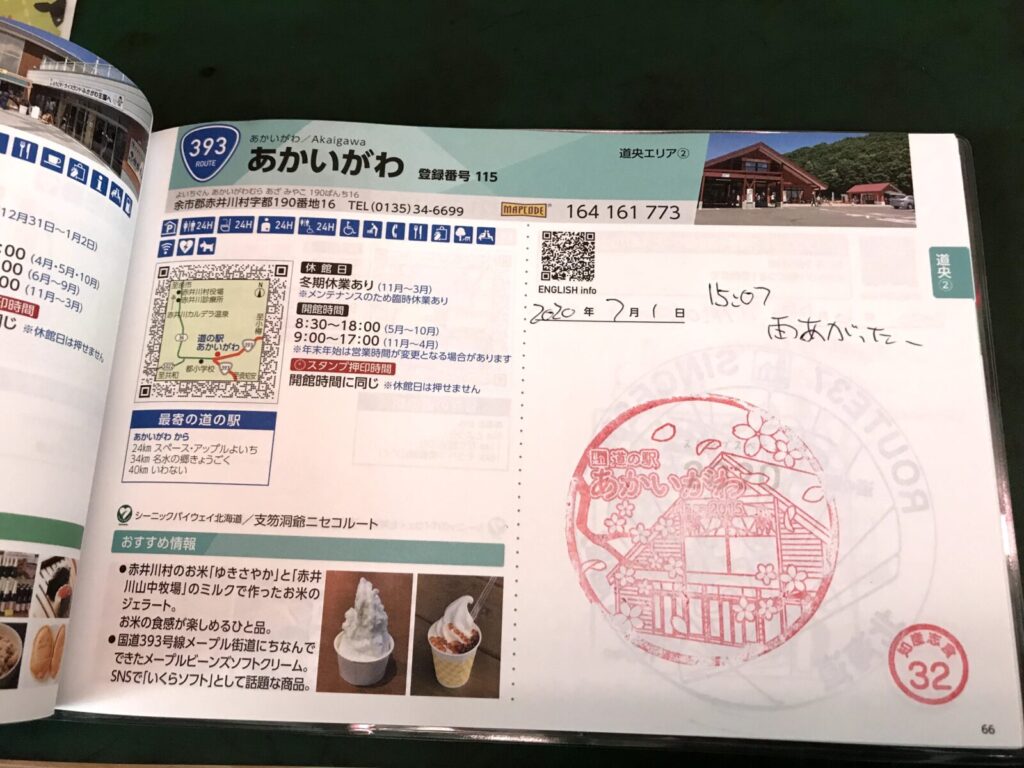 12月31日～1月2日)
:00 (4月・5月・10月)
:00 (6月～9月)
:00 (11月～3月)
印時間
じ ※休館日は押せません
393
ROUTE
あかいがわ／Akaigawa
あかいがわ 登録番号 115
道央エリア②
よいちぐん あかいがわむら あざ みやこ 190ばんち16
余市郡赤井川村字都190番地16 TEL(0135)34-6699
MAPCODE 164 161 773
24H 24H 24H 24H
至余市
赤井川村役場
赤井川診療所
赤井川カルデラ温泉
N
至小樽
道の駅
あかいがわ
393
都小学校
至共和
393
至倶知安
休館日
冬期休業あり (11月～3月)
※メンテナンスのため臨時休業あり
開館時間
8:30～18:00 (5月～10月)
9:00～17:00 (11月～4月)
※年末年始は営業時間が変更となる場合があります
スタンプ押印時間
開館時間に同じ ※休館日は押せません
最寄の道の駅
あかいがわ から
24km スペース・アップルよいち
34km 名水の郷きょうごく
40km いわない
シーニックバイウェイ北海道／支笏洞爺ニセコルート
おすすめ情報
●赤井川村のお米「ゆきさやか」と「赤井
川山中牧場」のミルクで作ったお米の
ジェラート。
お米の食感が楽しめるひと品。
●国道393号線メープル街道にちなんで
できたメープルビーンズソフトクリーム。
SNSで「いくらソフト」として話題な商品。
ENGLISH info
2020 年 7月 1 日
15:07
雨あがった
道央②
道の駅
あかいがわ
2015
知産志食
32
66